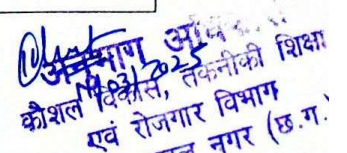 अनुभाग
11/03/2025
कौशल विकास, तकनीकी शिक्षा
एवं रोजगार विभाग
नगर (छ.ग.)